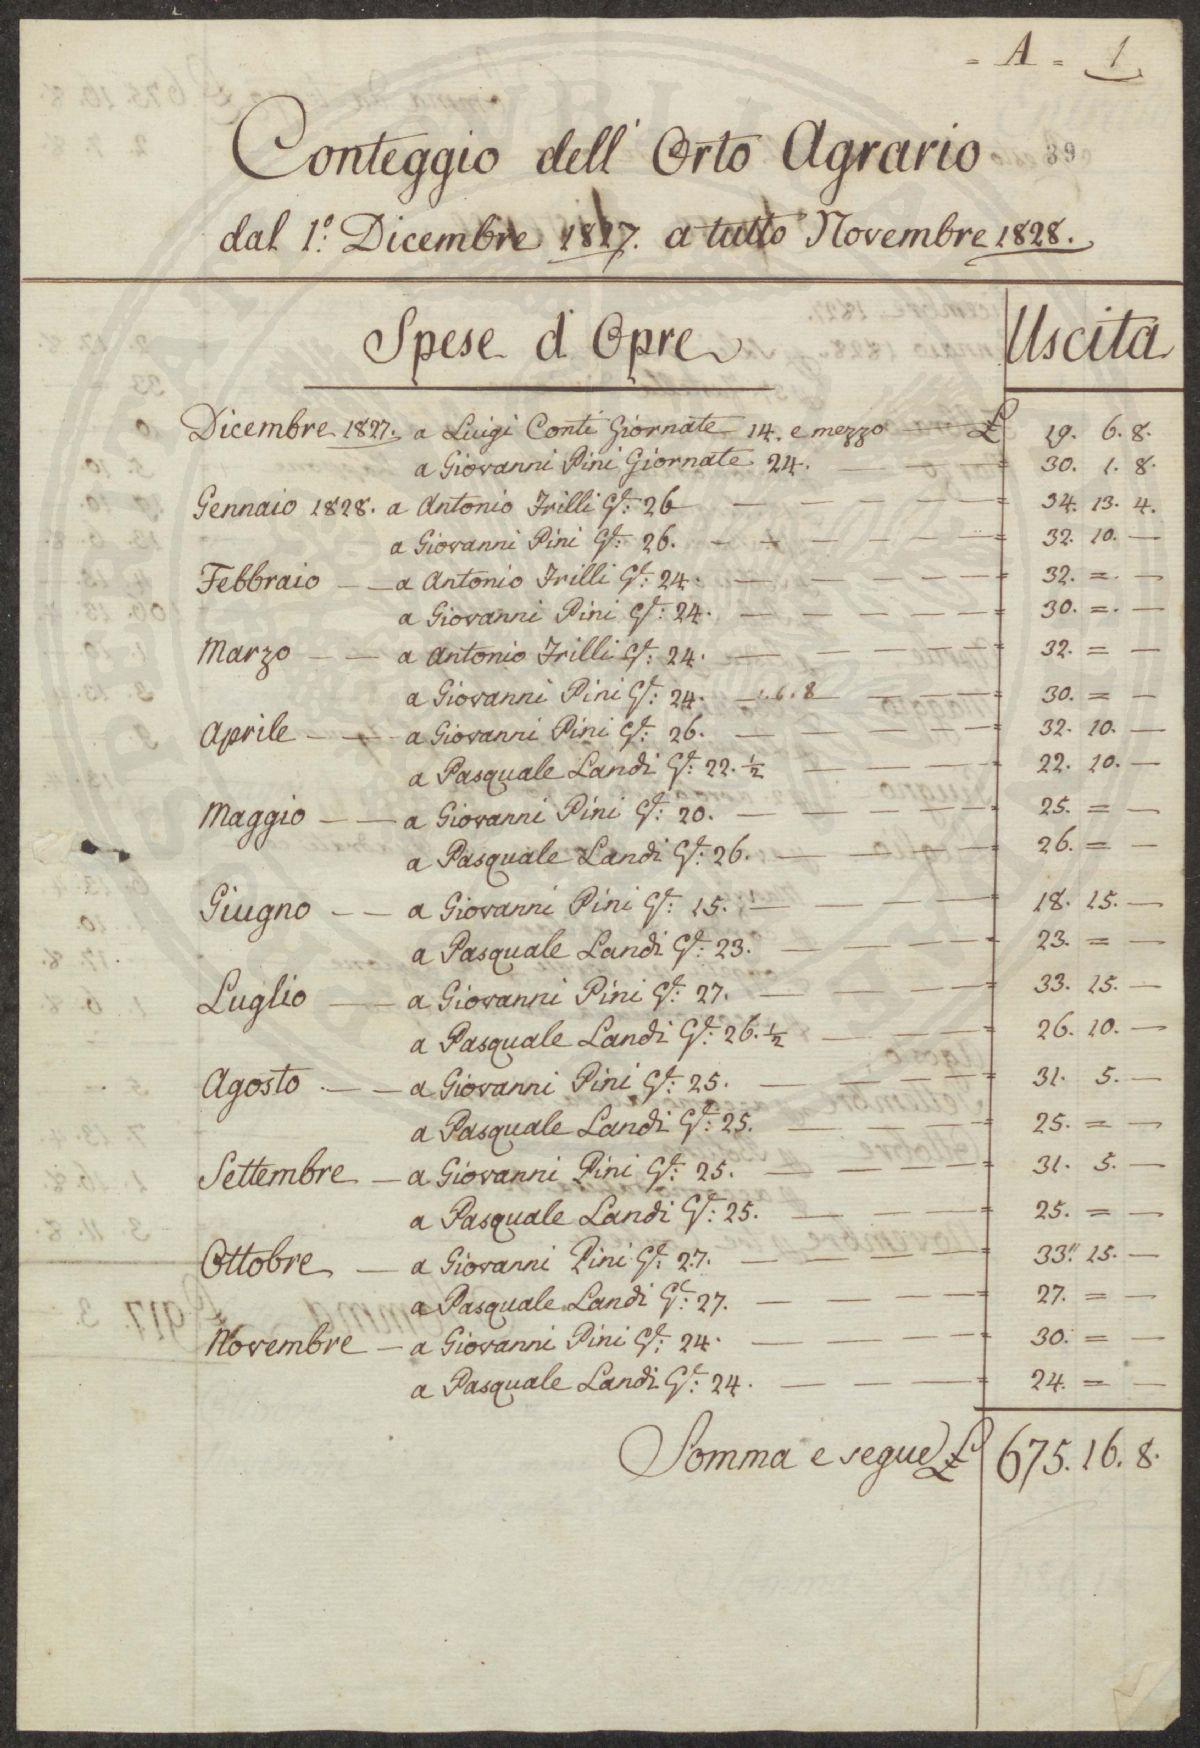 = A = 1
Conteggio dell' Orto Agrario 39
dal 1.º Dicembre 1827. a tutto Novembre 1828.
Spese d'Opre Uscita
Dicembre 1827. a Luigi Conti Giornate 14. e mezzo £ 19. 6. 8.
a Giovanni Pini Giornate 24. — — — = 30. 1. 8.
Gennaio 1828. a Antonio Frilli G.te: 26 — — — — = 34. 13. 4.
a Giovanni Pini G.te: 26. — — — — = 32. 10. —
Febbraio — — a Antonio Frilli G.te: 24. — — — — = 32. =. —
a Giovanni Pini G.te: 24. — — — — = 30. =. —
Marzo — — a Antonio Frilli G.te: 24. — — — — = 32. = —
a Giovanni Pini G.te: 24. — 1. 6. 8 — — = 30. = —
Aprile — — a Giovanni Pini G.te: 26. — — — — = 32. 10. —
a Pasquale Landi G.te: 22. ½ — — — = 22. 10. —
Maggio — — a Giovanni Pini G.te: 20. — — — — = 25. = —
a Pasquale Landi G.te: 26. — — — — = 26. = —
Giugno — — a Giovanni Pini G.te: 15. — — — — = 18. 15. —
a Pasquale Landi G.te: 23. — — — — = 23. = —
Luglio — — a Giovanni Pini G.te: 27. — — — — = 33. 15. —
a Pasquale Landi G.te: 26. ½ — — — = 26. 10. —
Agosto — — a Giovanni Pini G.te: 25. — — — — = 31. 5. —
a Pasquale Landi G.te: 25. — — — — = 25. = —
Settembre — a Giovanni Pini G.te: 25. — — — — = 31. 5. —
a Pasquale Landi G.te: 25. — — — — = 25. = —
Ottobre — a Giovanni Pini G.te: 27. — — — — = 33" 15. —
a Pasquale Landi G.te: 27. — — — — = 27. = —
Novembre — a Giovanni Pini G.te: 24. — — — — = 30. = —
a Pasquale Landi G.te: 24. — — — — = 24. = —
Somma e segue £ 675. 16. 8.